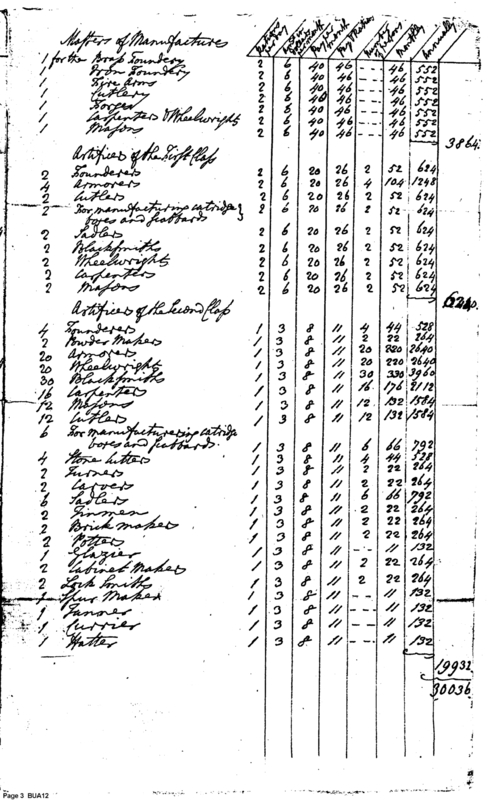 Masters of Manufacture
1 for the Brass Foundery 2 6 40 46 - - - 46 552
1 Iron Foundery 2 6 40 46 - - - 46 552
1 Fire Arms 2 6 40 46 - - - 46 552
1 Cutlery 2 6 40 46 - - - 46 552
1 Forges 2 6 40 46 - - - 46 552
1 Carpenters & Wheelwrights 2 6 40 46 - - - 46 552
1 Masons 2 6 40 46 - - - 46 552
3864
Artifices of the First Class
2 Founderers 2 6 20 26 2 52 624
4 Armorers 2 6 20 26 4 104 1248
2 Cutlers 2 6 20 26 2 52 624
2 For manufacturing catridge
boxes and scabbards 2 6 20 26 2 52 624
2 Sadlers 2 6 20 26 2 52 624
2 Blacksmiths 2 6 20 26 2 52 624
2 Wheelwrights 2 6 20 26 2 52 624
2 Carpenters 2 6 20 26 2 52 624
2 Masons 2 6 20 26 2 52 624
6240
Artifices of the Second Class
4 Founderers 1 3 8 11 4 44 528
2 Powder Makers 1 3 8 11 2 22 264
20 Armorers 1 3 8 11 20 220 2640
20 Wheelwrights 1 3 8 11 20 220 2640
30 Blacksmiths 1 3 8 11 30 330 3960
16 Carpenters 1 3 8 11 16 176 2112
12 Masons 1 3 8 11 12 132 1584
12 Cutlers 1 3 8 11 12 132 1584
6 For manufacturing catridge
boxes and scabbards 1 3 8 11 6 66 792
4 Stone Cutters 1 3 8 11 4 44 528
2 Turners 1 3 8 11 2 22 264
2 Carvers 1 3 8 11 2 22 264
6 Sadlers 1 3 8 11 6 66 792
2 Tinmen 1 3 8 11 2 22 264
2 Brick maker 1 3 8 11 2 22 264
2 Potters 1 3 8 11 2 22 264
1 Glazier 1 3 8 11 - - 11 132
2 Cabinet Makers 1 3 8 11 2 22 264
2 Lock Smiths 1 3 8 11 2 22 264
1 Spur Maker 1 3 8 11 - - 11 132
1 Tanner 1 3 8 11 - - 11 132
1 Currier 1 3 8 11 - - 11 132
1 Hatter 1 3 8 11 - - 11 132
19932
30036
Page 3 BUA12